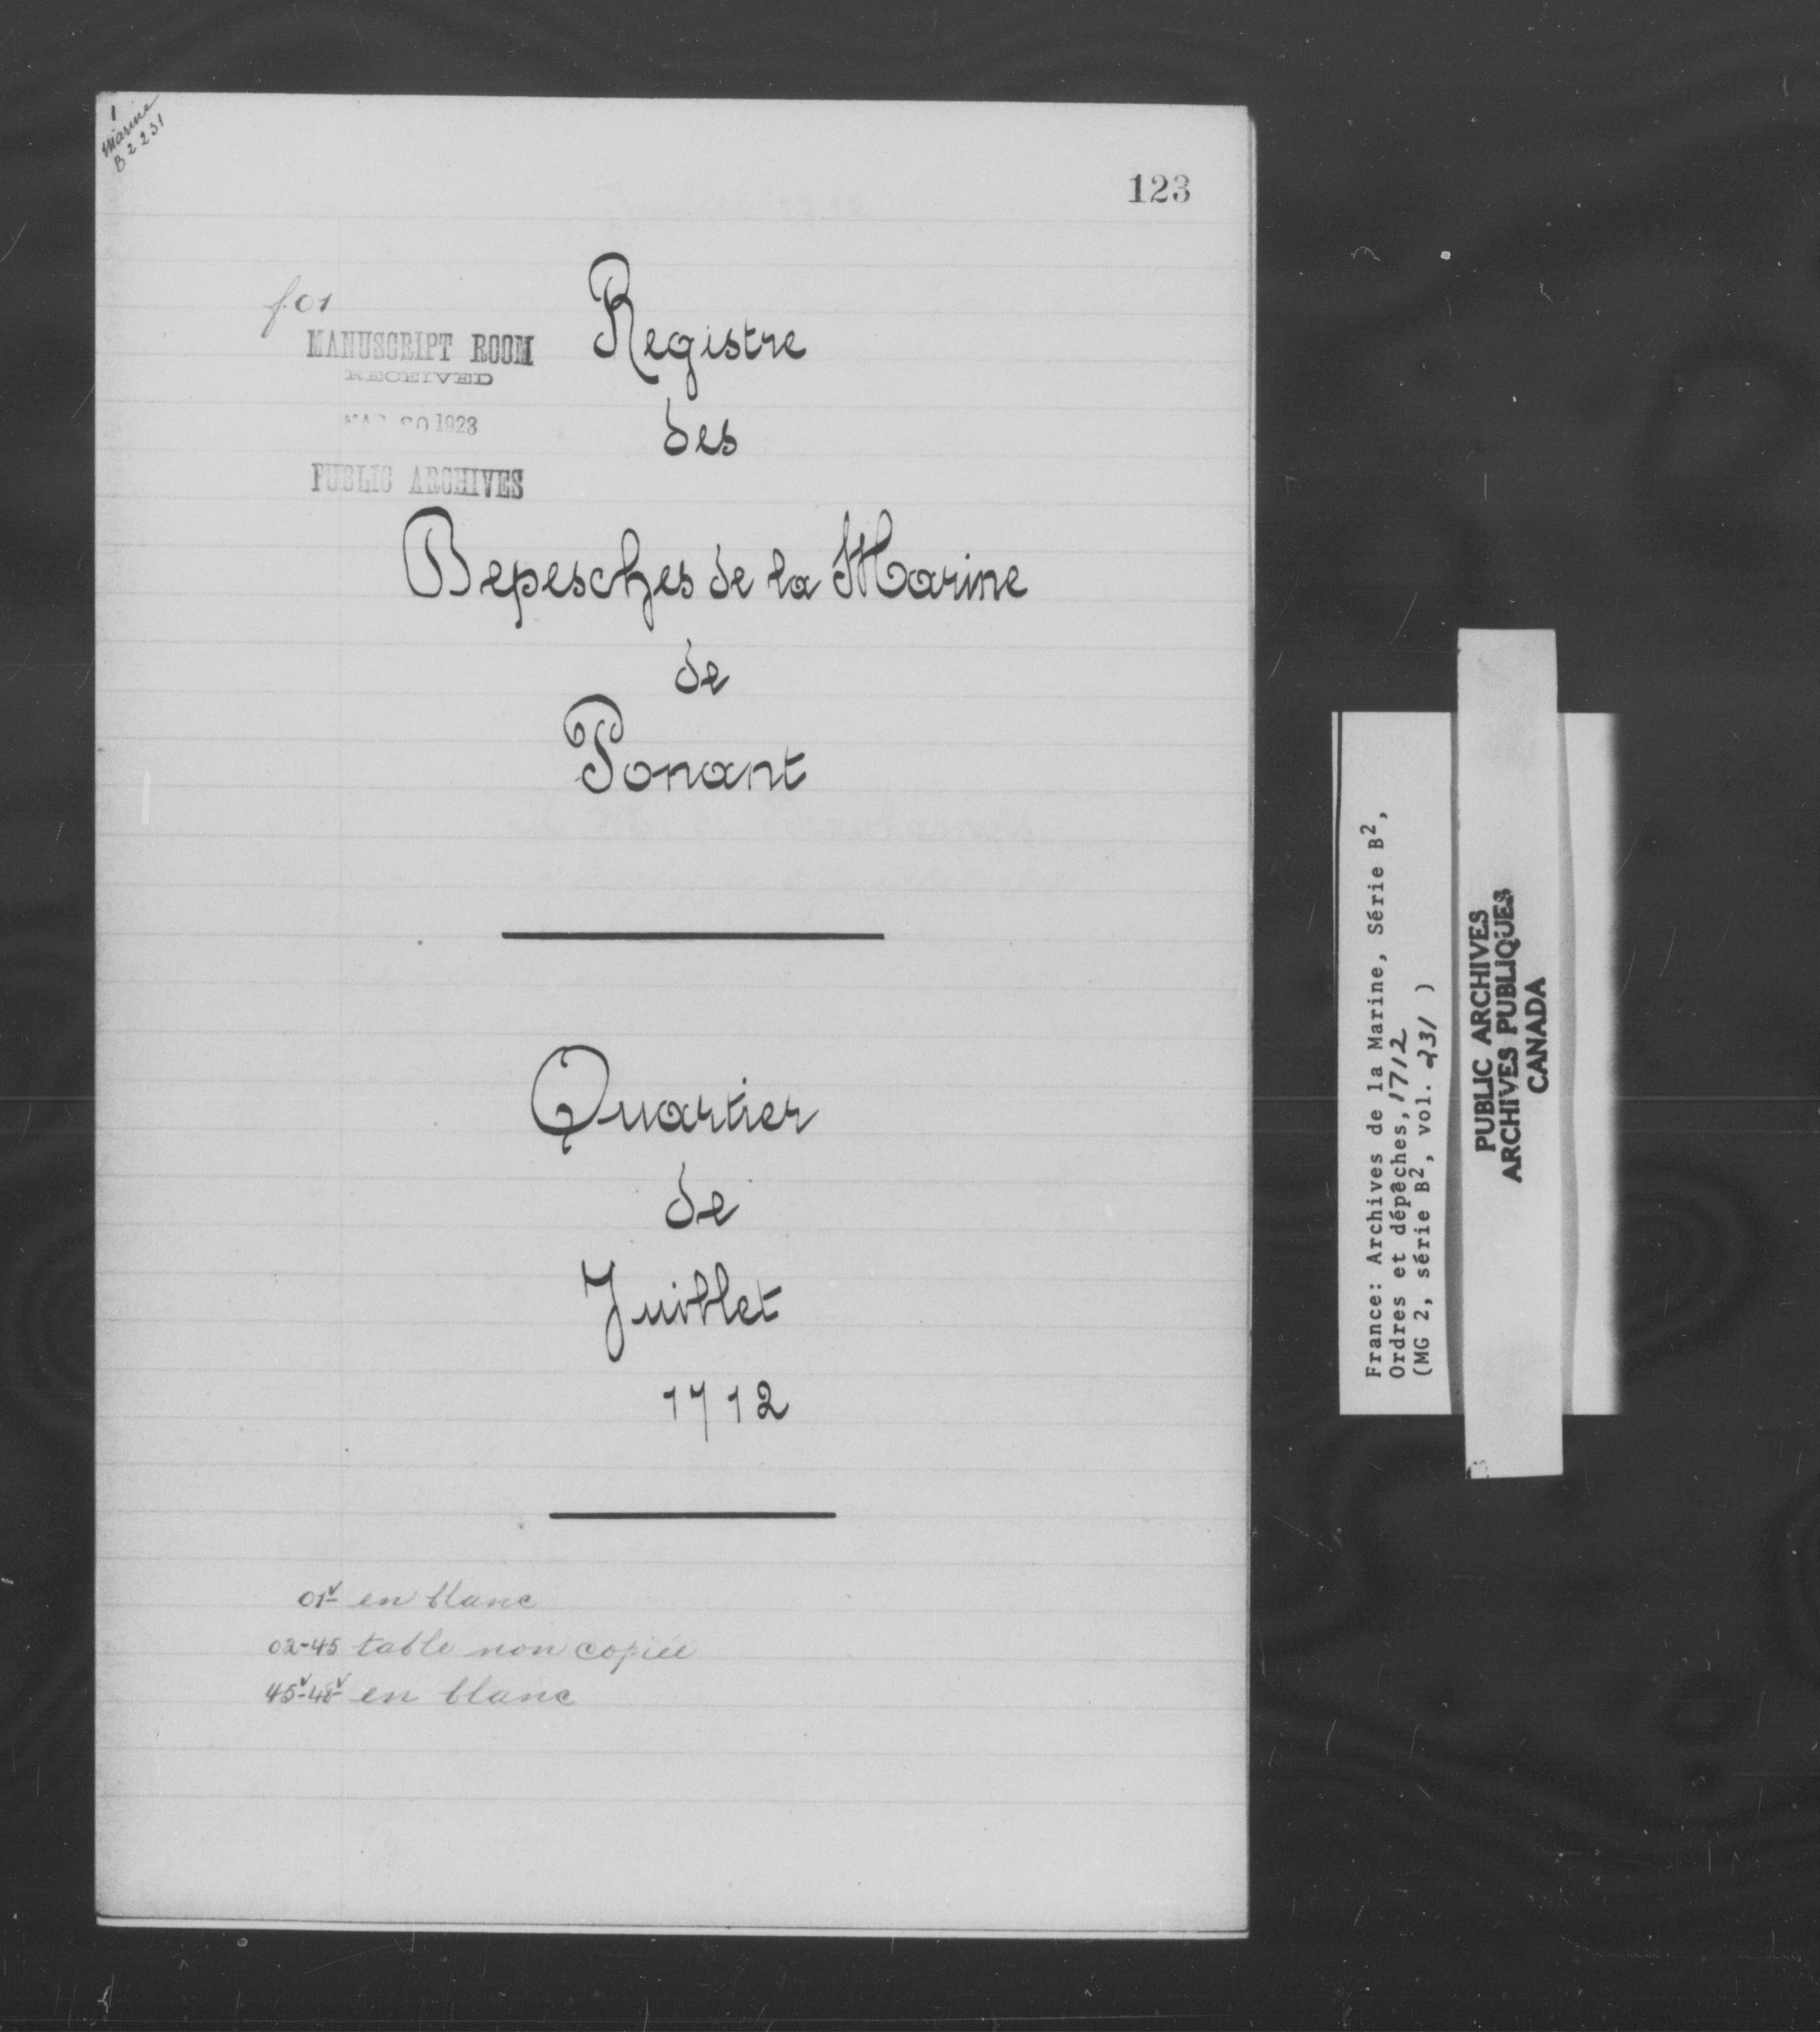 1
Marine
B 2 231
123
f. 01
MANUSCRIPT ROOM
RECEIVED
1923
PUBLIC ARCHIVES
Registre
des
Depesches de la Marine
de
Ponant
Quartier
de
Juillet
1712
01v en blanc
02-45 table non copiée
45v-48v en blanc
France: Archives de la Marine, Série B2,
Ordres et dépêches, 1712
(MG 2, série B2, vol. 231 )
PUBLIC ARCHIVES
ARCHIVES PUBLIQUES
CANADA